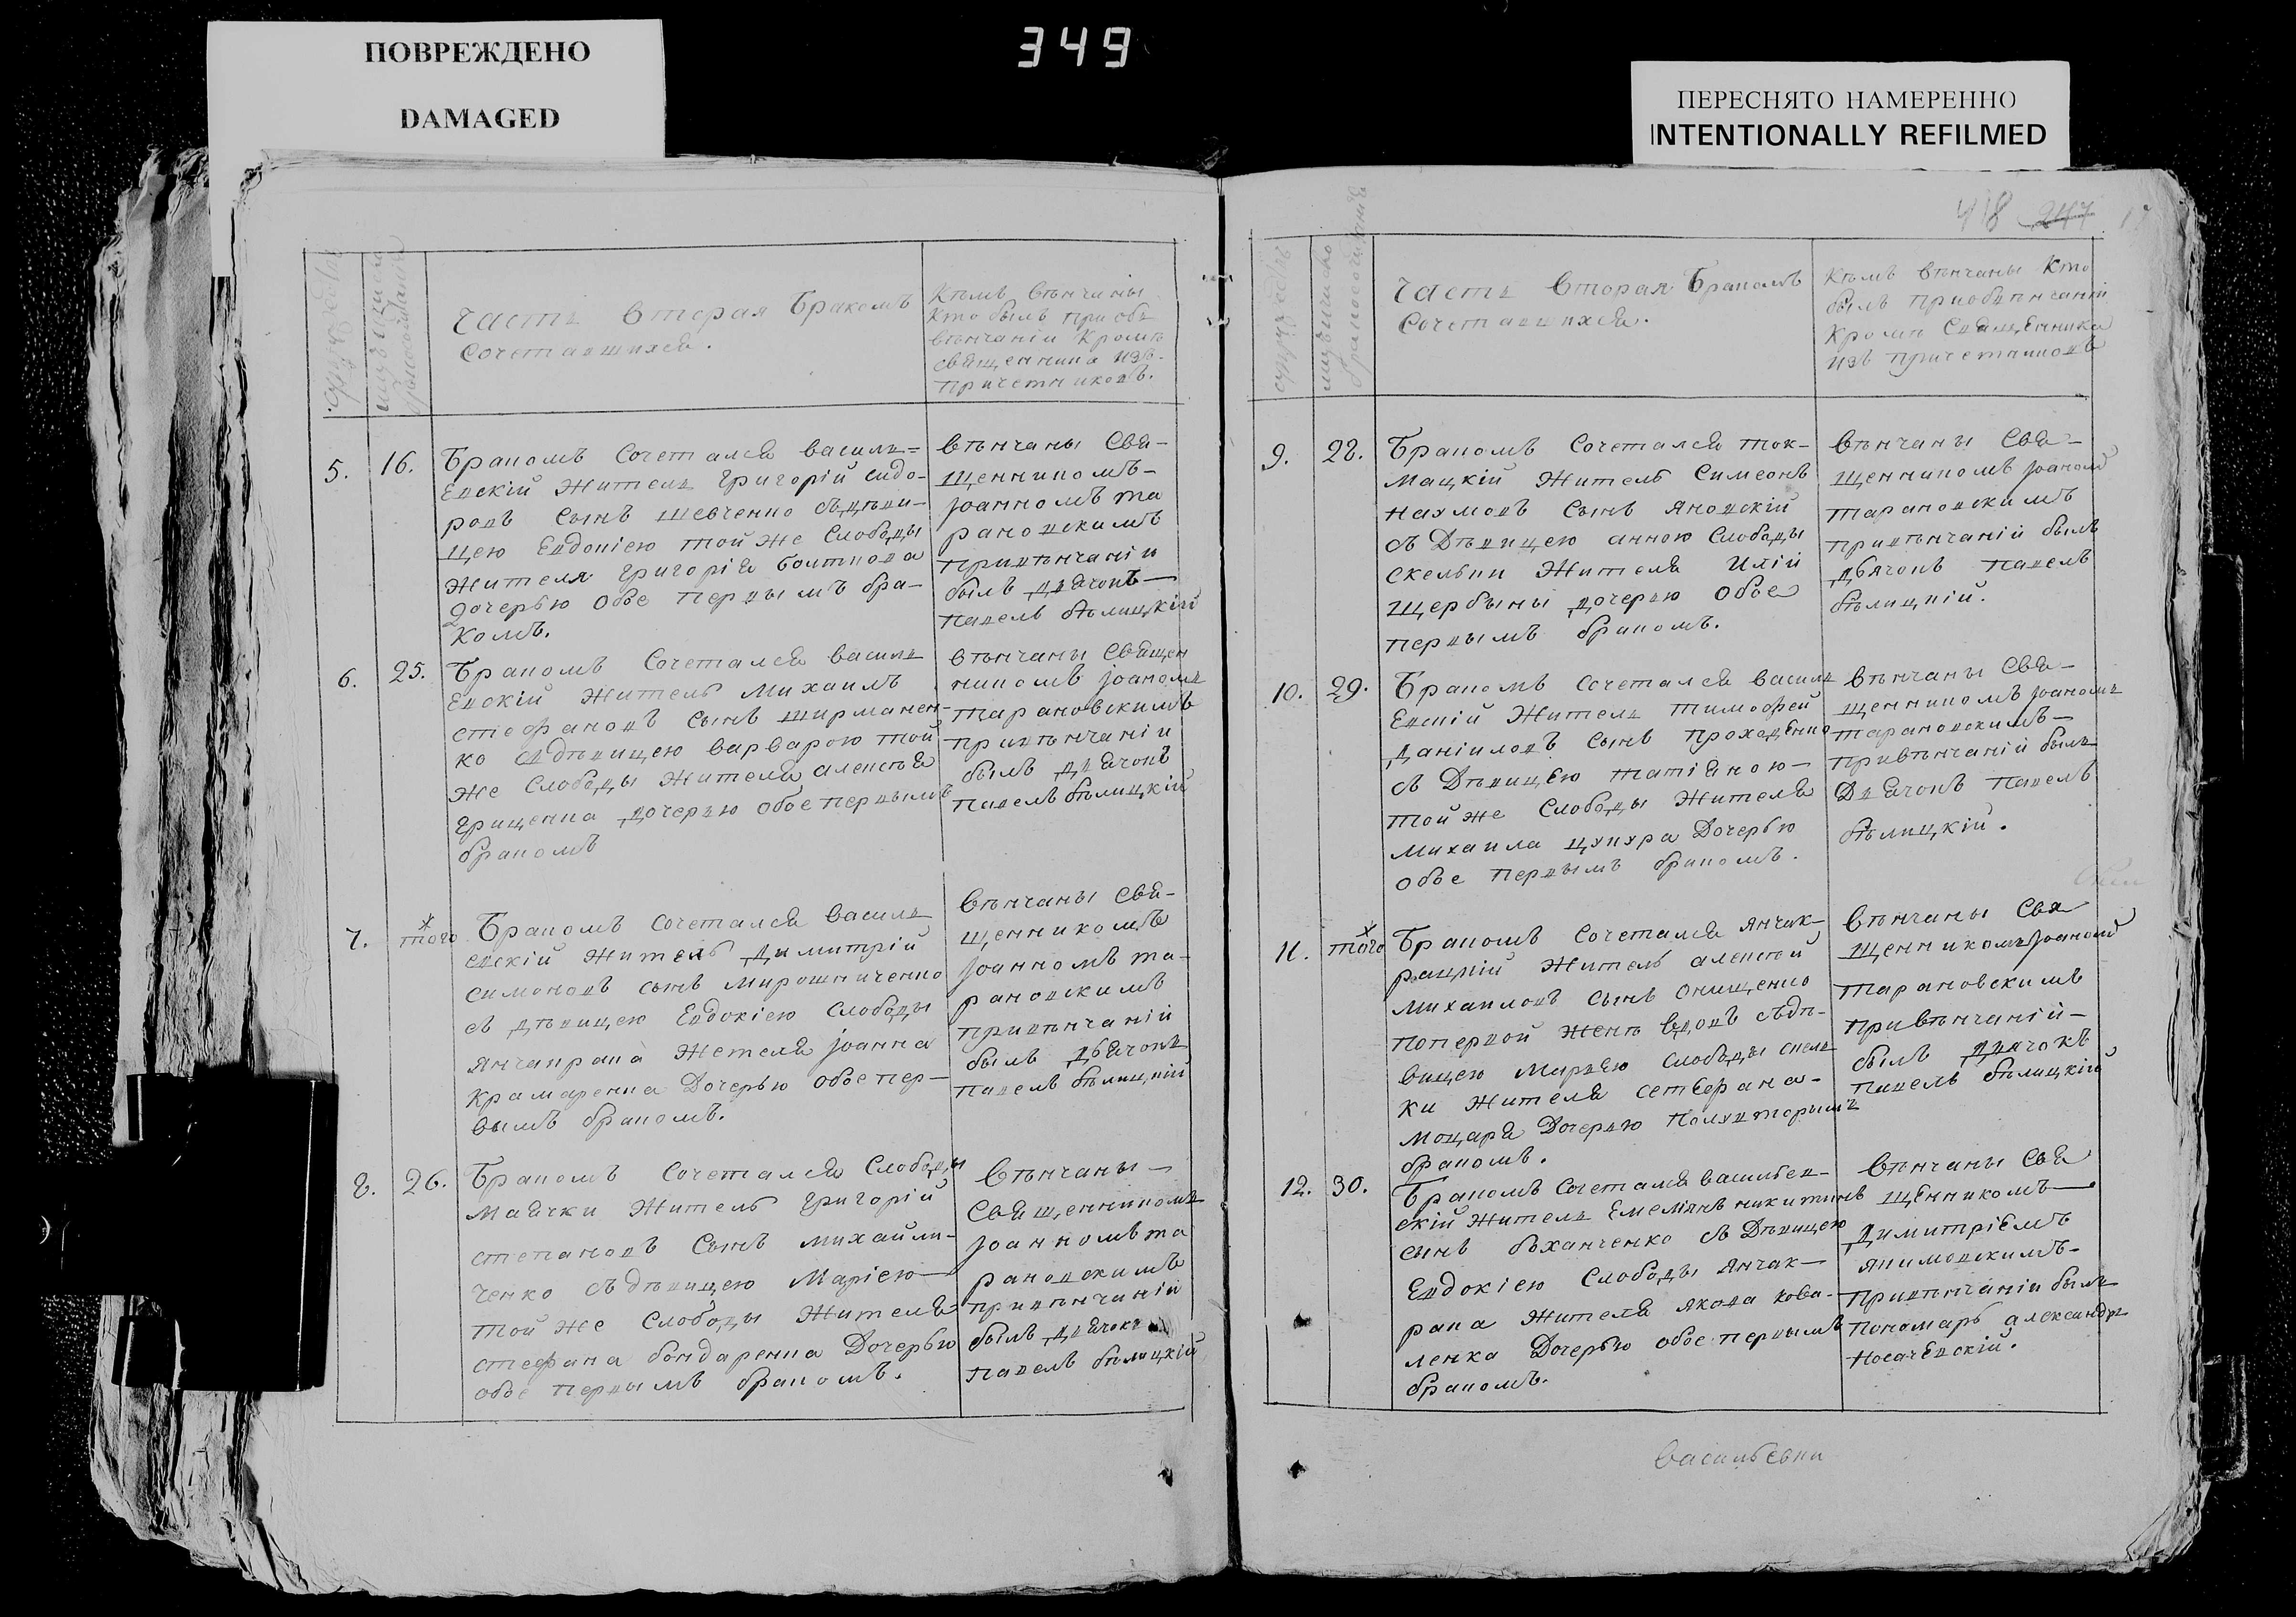 ПОВРЕЖДЕНО
DAMAGED
349
ПЕРЕСНЯТО НАМЕРЕННО
INTENTIONALLY REFILMED
418 247
Часть вторая Бракомъ
Сочетавшихся.
Кѣмъ вѣнчаны
Кто былъ при объ
вѣнчаніи Кромѣ
священника изъ
причетниковъ.
5. 16.
Бракомъ Сочетался василь=
евскій житель григорій сидо-
ровъ сынъ шевченко съдѣви-
цею Евдокіею той же слободы
жителя григорія болткова
дочерью обое первымъ бра-
комъ.
вѣнчаны Свя-
щенникомъ-
Iоанномъ та
рановскимъ
привѣнчаніи
былъ дьячокъ-
павелъ бѣлицкій
6. 25.
Бракомъ Сочетался василь
евскій житель михаилъ
стефановъ сынъ ширманен-
ко съдѣвицею варварою той
же слободы жителя алексѣя
грищенка дочерью обое первымъ
бракомъ
вѣнчаны Священ
никомъ Iоаномъ
тарановскимъ
привѣнчаніи
былъ дьячокъ
павелъ бѣлицкій
7. того ж
Бракомъ сочетался василь
евскій житель димитрій
симоновъ сынъ мирошниченко
съ дѣвицею Евдокіею слободы
янчакрака жетеля Iоанна
крамаренка Дочерью обое пер-
вымъ бракомъ.
вѣнчаны Свя-
щенникомъ
Iоанномъ та-
рановскимъ
привѣнчаній
былъ дьячокъ
павелъ бѣлицкій
8. 26.
Бракомъ сочетался Слободы
маячки житель григорій
степановъ сынъ михайли-
ченко съдѣвицею Маріею
той же слободы жителя
стефана бондаренка Дочерью
обое первымъ бракомъ.
вѣнчаны-
Священникомъ
Iоанномъ та
рановскимъ
привѣнчаніи
былъ дьячокъ
павелъ бѣлицкій
Часть вторая Бракомъ
Сочетавшихся.
Кѣмъ вѣнчаны Кто
былъ приобвѣнчаніи
кромѣ Священника
изъ причетниковъ
9. 28.
Бракомъ Сочетался ток-
мацкій житель Симеонъ
наумовъ сынъ яновскій
съ Дѣвицею анною слободы
скельки жителя иліи
щербыны дочерью обое
первымъ бракомъ.
вѣнчаны Свя-
щенникомъ Iоаномъ
тарановскимъ
привѣнчаній былъ
дьячокъ павелъ
бѣлицкій.
10. 29.
Бракомъ сочетался василь
евскій житель тимофей
даніиловъ сынъ проходенко
съ Дѣвицею татіаною-
той же слободы жителя
михаила цупура Дочерью
обое первымъ бракомъ.
вѣнчаны Свя-
щенникомъ Iоаномъ
тарановскимъ-
привѣнчаній былъ
Дьячокъ павелъ
бѣлицкій.
11. того ж
Бракомъ сочетался янчак-
рацкій житель алексѣй
михаиловъ сынъ онищенко
попервой женѣ вдовъ съдѣ-
вицею Марьею слободы скель
ки жителя
моцаря Дочерью полувторымъ
бракомъ.
вѣнчаны Свя
щенникомъ Iоаномъ
тарановскимъ
привѣнчаній-
былъ дьячокъ
павелъ бѣлицкій
12. 30.
Бракомъ сочетался васильев-
скій житель Емелiянъ никитинъ
сынъ буханченко съ Дѣвицею
Евдокіею слободы янчак-
рака жителя якова кова-
ленка Дочерью обое первымъ
бракомъ.
вѣнчаны Свя
щенникомъ-
Димитріемъ
якимовскимъ-
привѣнчаніи былъ
пономарь александръ
носачевскій.
васильевки